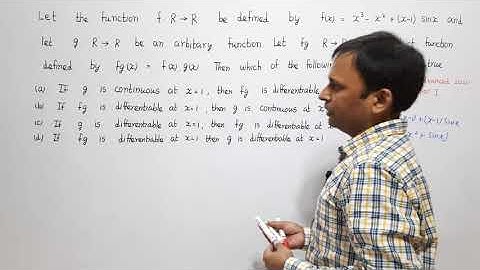 Let the function f R→R be defined by f(x) = x³- x² + (x-1) sinx and
let g R→R be an arbitrary function. Let fg R→R function
defined by fg(x) = f(x) g(x) Then which of the following true
(a) If g is continuous at x=1, then fg is differentiable
(b) If fg is differentiable at x=1, then g is continuous at x
(c) If g is differentiable at x=1, then fg is differentiable at
(d) If fg is differentiable at x=1 then g is differentiable at x=1